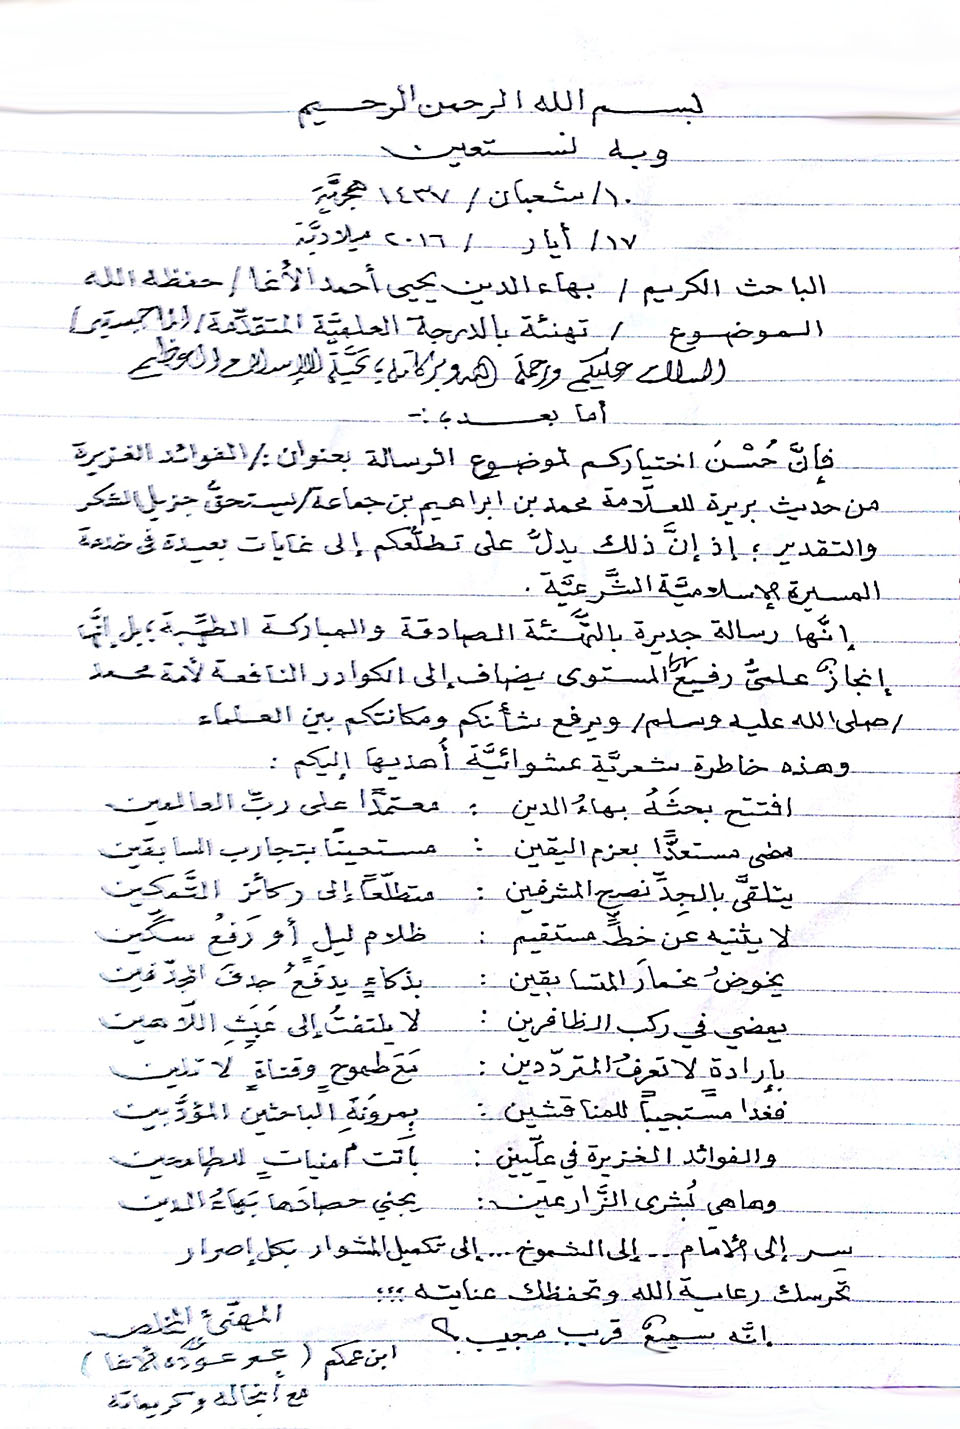 بسم الله الرحمن الرحيم
وبه نستعين
١٠/ شعبان / ١٤٣٧ هجريَّة
١٧/ أيار / ٢٠١٦ ميلاديَّة
الباحث الكريم / بهاء الدين يحيى أحمد الأغا / حفظه الله
الموضوع / تهنئة بالدرجة العلميَّة المتقدِّمة / الماجستير /
السلام عليكم ورحمة الله وبركاته؛ تحيَّة الإسلام العظيم
أما بعد؛ :-
فإنَّ حُسْنَ اختياركم لموضوع الرسالة بعنوان :/ الفوائد الغزيرة
من حديث بريرة للعلَّامة محمد بن ابراهيم بن جماعة / ليستحقُّ جزيل الشكر
والتقدير ؛ إذ إنَّ ذلك يدلُّ على تطلُّعكم إلى غايات بعيدة في خدمة
المسيرة الإسلاميَّة الشَّرعيَّة .
إنَّها رسالة جديرة بالتَّهنئة الصادقة والمباركة الطيِّبة ؛ بل إنَّها
إنجازٌ علميٌّ رفيع المستوى يضاف إلى الكوادر النافعة لأمة محمد
/ صلى الله عليه وسلم / ويرفع شأنكم ومكانتكم بين العلماء
وهذه خاطرة شعريَّة عشوائيَّة أُهديها إليكم :
افتتح بحثَهُ بهاءُ الدين : معتمدًا على ربِّ العالمين
مضى مستعدًّا بعزم اليقين : مستعينًا بتجارب السابقين
يتلقَّى بالجِدِّ نصح المشرفين : متطلّعًا إلى ركائز التَّمكين
لا يثنيه عن خطٍّ مستقيم : ظلام ليلٍ أو رَفعُ سكِّين
يخوضُ غمارَ المتسابقين : بذكاءٍ يدفَعُ جدفَ المجدّفين
يمضي في ركب الظافرين : لا يلتفتُ إلى عَبَثِ اللَّاهين
بإرادةٍ لا تعرفُ المتردّدين : مَعَ طموحٍ وقناةٍ لا تلين
فغدا مستجيباً للمناقشين : بمرونَةِ الباحثين المؤدَّبين
والفوائد الغزيرة في علِّيين : باتَت أمنياتٍ للطامحين
وها هي بُشرى الزَّارعين : يجني حصادَها بَهاءُ الدين
سِر إلى الأمام .. إلى الشموخ ... إلى تكميل المشوار بكل إصرار
تحرسك رعاية الله وتحفظك عنايته ؛؛؛
إنَّه سميعٌ قريب مجيب ؟
المهنّئ المخلص
ابن عمكم ( عمر عودة الأغا )
مع أنجاله وكريماته